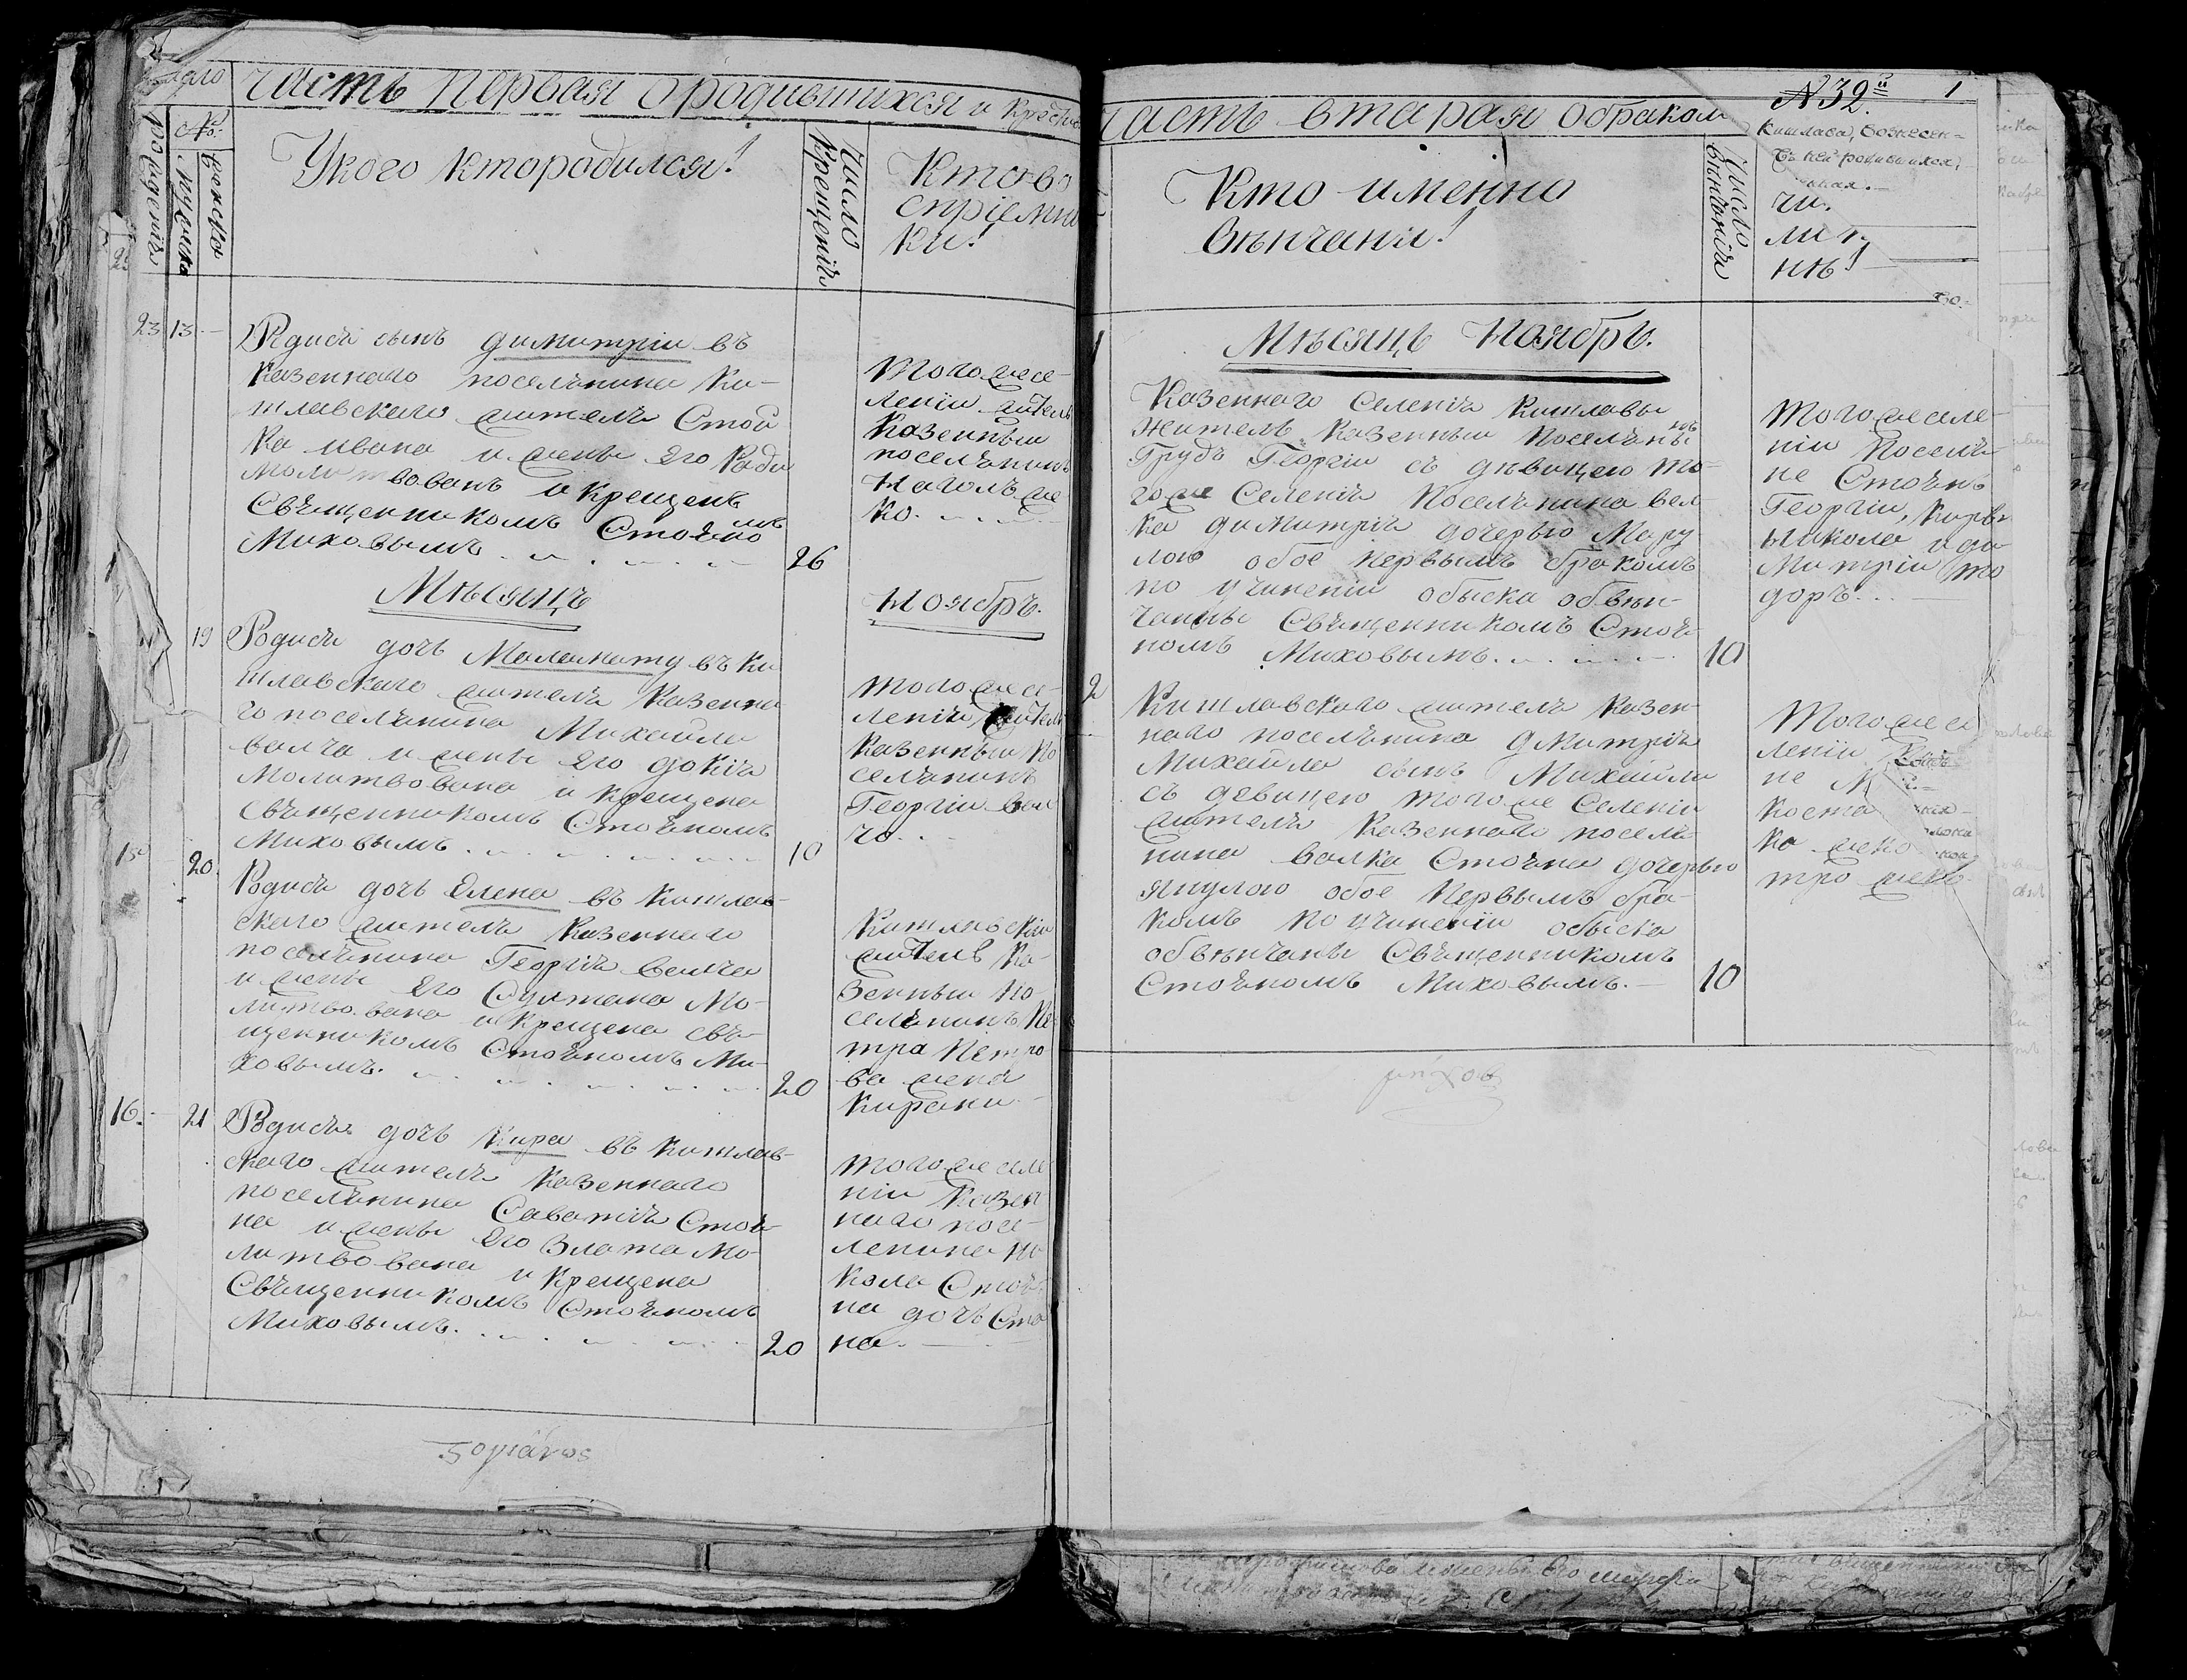 часть первая ородившихся и крестив
число
рождения
№
мужска
женска
У кого кто родился!
число
крещения
Кто во
спріемни
ки!
23 13
Родися сынъ Димитрiи въ
казеннаго поселянина Ки-
шлавскаго жителя Стой
ка Ивана и жены его Ради
молитвованъ и крещенъ
Свѣщенникомъ Стояно
мъ
Миховымъ
26
того же се-
ленiи жители
Казенныи
поселянинъ
Никола Же
ко.
Мѣсяцъ Ноябръ.
19
Родися дочъ Маламату въ Ки
шлавскаго жителя Казенна
го поселянина Михаила
Волча и жены его Докiя
Молитвована и крещена
Свѣщенникомъ Стояномъ
Миховымъ
10
того же се-
ленiя жители
Казенныи по
селянинъ
Георгiи Вол
чо.
15
20.
Родися дочъ Елена въ Кишлав-
скаго жителя Казеннаго
поселянина Георгiя Волча
и жены его Султана Мо-
литвована и крещена свѣ-
щенникомъ Стояномъ Ми-
ховымъ.
20
Кишлавскiи
жителъ Ка-
зенныи по-
селянинъ Пе
тра Петро
ва жена
Кирани
16.
21
Родися дочъ Кира въ Кишлав-
скаго жителя Казеннаго
поселянина Саватiя Стоя-
на и жены его Злата Мо-
литвована и крещена
Свѣщенникомъ Стояномъ
Миховымъ.
20
того же селе
нiи Казен
наго посе-
ленина Ни
кола Стоя-
на дочъ Ста
на.
часть втарая обраком
№32.
1
Кишлава, Вознесен-
въ ней родившихся,
Кто именно
вѣнчани!
число
вѣнчанiя
чи.
ли
нѣ!
Мѣсяцъ Ноябръ.
1
Казеннаго Селенiя Кишлавы
житель Казенныи поселянинъ
Грудъ Георгiи съ дѣвицею то-
гоже Селенiя Поселянина Вел
ка Димитрiя дочерью Мару
лою обое первымъ бракомъ
по учиненiи обыска обвѣн-
чанны Свѣщенникомъ Стоя-
номъ Миховымъ.
10
того же селе-
нiи поселя-
не Стоянъ
Георгiи, Киръ
Никола и ди
митрiи то
доръ.
2
Кишлавскаго жителя Казен-
наго поселянина Дмитрiя
Михайла сынъ Михайли
съ девицею того же Селенiи
жителя Казеннаго поселя-
нина Волка Стояна дочерью
Янулою обое первымъ бра-
комъ по учиненiи обыска
обвѣнчаны Свѣщенникомъ
Стояномъ Миховымъ.
10
Того же се
ленiи
не
Коста
ко жеко
тро жеко